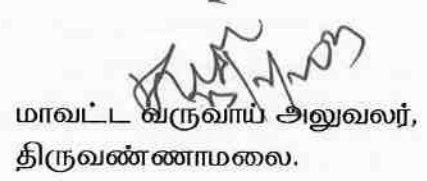 மாவட்ட வருவாய் அலுவலர்,
திருவண்ணாமலை.